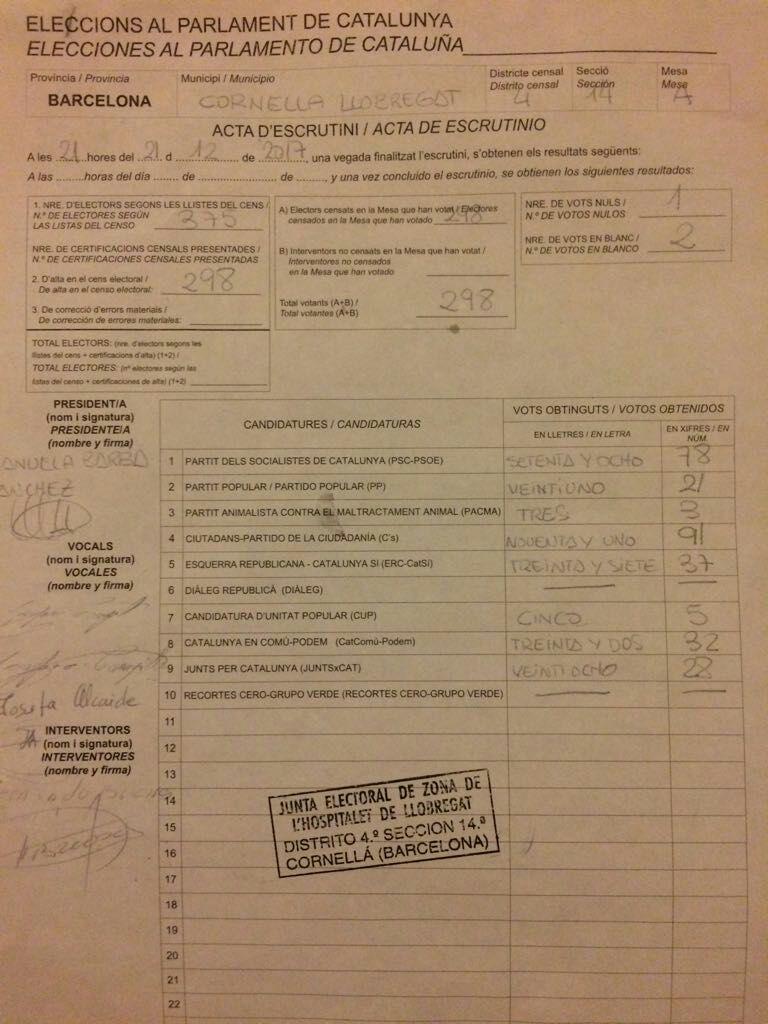 ELECCIONS AL PARLAMENT DE CATALUNYA
ELECCIONES AL PARLAMENTO DE CATALUÑA
Província / Provincia
BARCELONA
Municipi / Municipio
CORNELLA LLOBREGAT
Districte censal
Distrito censal
4
Secció
Sección
14
Mesa
Mesa
A
ACTA D'ESCRUTINI / ACTA DE ESCRUTINIO
A les 21 hores del 21 d 12 de 2017, una vegada finalitzat l'escrutini, s'obtenen els resultats següents:
A las ......... horas del día ....... de ..................... de ........, y una vez concluido el escrutinio, se obtienen los siguientes resultados:
1. NRE. D'ELECTORS SEGONS LES LLISTES DEL CENS /
N.º DE ELECTORES SEGÚN
LAS LISTAS DEL CENSO 375
NRE. DE CERTIFICACIONS CENSALS PRESENTADES /
N.º DE CERTIFICACIONES CENSALES PRESENTADAS
2. D'alta en el cens electoral /
De alta en el censo electoral: 298
3. De correcció d'errors materials /
De corrección de errores materiales:
TOTAL ELECTORS: (nre. d'electors segons les
llistes del cens + certificacions d'alta) (1+2) /
TOTAL ELECTORES: (nº electores según las
listas del censo + certificaciones de alta) (1+2)
A) Electors censats en la Mesa que han votat / Electores
censados en la Mesa que han votado 298
B) Interventors no censats en la Mesa que han votat /
Interventores no censados
en la Mesa que han votado
Total votants (A+B) /
Total votantes (A+B) 298
NRE. DE VOTS NULS /
N.º DE VOTOS NULOS 1
NRE. DE VOTS EN BLANC /
N.º DE VOTOS EN BLANCO 2
PRESIDENT/A
(nom i signatura)
PRESIDENTE/A
(nombre y firma)
ANUELA BARBA
ANCHEZ
VOCALS
(nom i signatura)
VOCALES
(nombre y firma)
Josefa Alcaide
INTERVENTORS
(nom i signatura)
INTERVENTORES
(nombre y firma)
CANDIDATURES / CANDIDATURAS
VOTS OBTINGUTS / VOTOS OBTENIDOS
EN LLETRES / EN LETRA
EN XIFRES / EN NÚM.
1 PARTIT DELS SOCIALISTES DE CATALUNYA (PSC-PSOE) SETENTA Y OCHO 78
2 PARTIT POPULAR / PARTIDO POPULAR (PP) VEINTIUNO 21
3 PARTIT ANIMALISTA CONTRA EL MALTRACTAMENT ANIMAL (PACMA) TRES 3
4 CIUTADANS-PARTIDO DE LA CIUDADANÍA (C's) NOVENTA Y UNO 91
5 ESQUERRA REPUBLICANA - CATALUNYA SÍ (ERC-CatSí) TREINTA Y SIETE 37
6 DIÀLEG REPUBLICÀ (DIÀLEG)
7 CANDIDATURA D'UNITAT POPULAR (CUP) CINCO 5
8 CATALUNYA EN COMÚ-PODEM (CatComú-Podem) TREINTA Y DOS 32
9 JUNTS PER CATALUNYA (JUNTSxCAT) VEINTIOCHO 28
10 RECORTES CERO-GRUPO VERDE (RECORTES CERO-GRUPO VERDE)
11
12
13
14
15
16
17
18
19
20
21
22
JUNTA ELECTORAL DE ZONA DE
L'HOSPITALET DE LLOBREGAT
DISTRITO 4.º SECCION 14.ª
CORNELLÁ (BARCELONA)